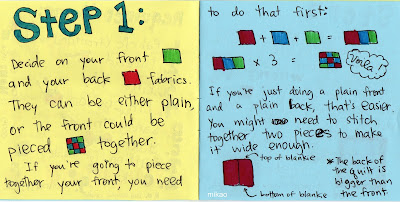 Step 1:
Decide on your front
and your back fabrics.
They can be either plain,
or the front could be
pieced together.
If you're going to piece
together your front, you need
to do that first:
+ + =
x 3 = Voila
If you're just doing a plain front
and a plain back, that's easier.
You might need to stitch
together two pieces to make
it wide enough.
top of blankie
bottom of blankie
* The back of
the quilt is
bigger than
the front
mikoa